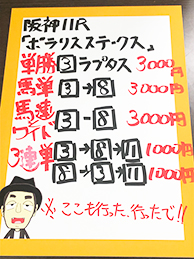 阪神11R
『ポラリスステークス』
単勝 3 ラプタス 3000円
馬単 3→8 3000円
馬連 3-8 3000円
ワイド
3連単 3→8→11 1000円
8→3→11 1000円
※ここも行った、行ったで!!